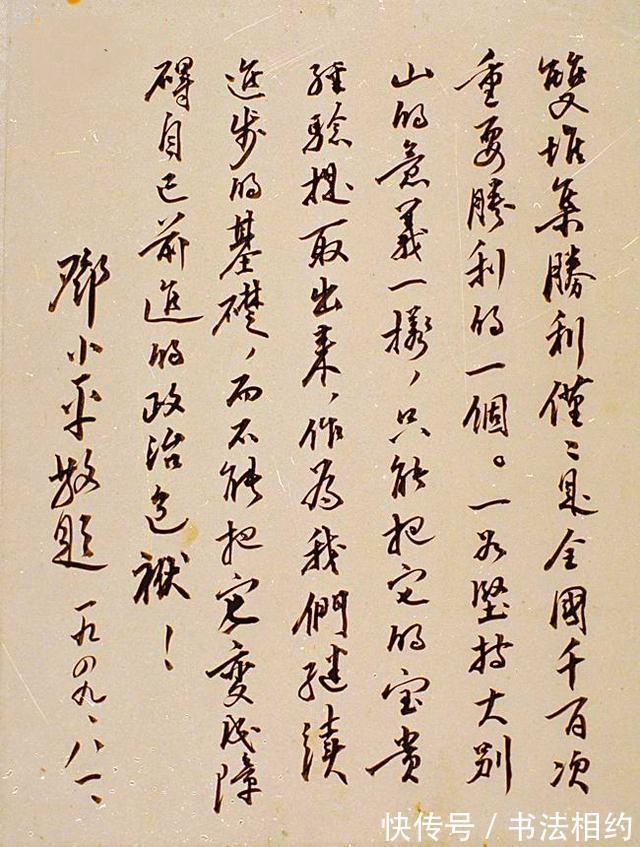 雙堆集勝利僅〻是全國千百次
重要勝利的一個。一如堅持大别
山的意義一樣，只能把它的宝贵
經驗提取出来，作為我們继續
進步的基礎，而不能把它变成障
碍自己前進的政治包袱！
鄧小平敬題 一九四九、八、一、
快传号／书法相约